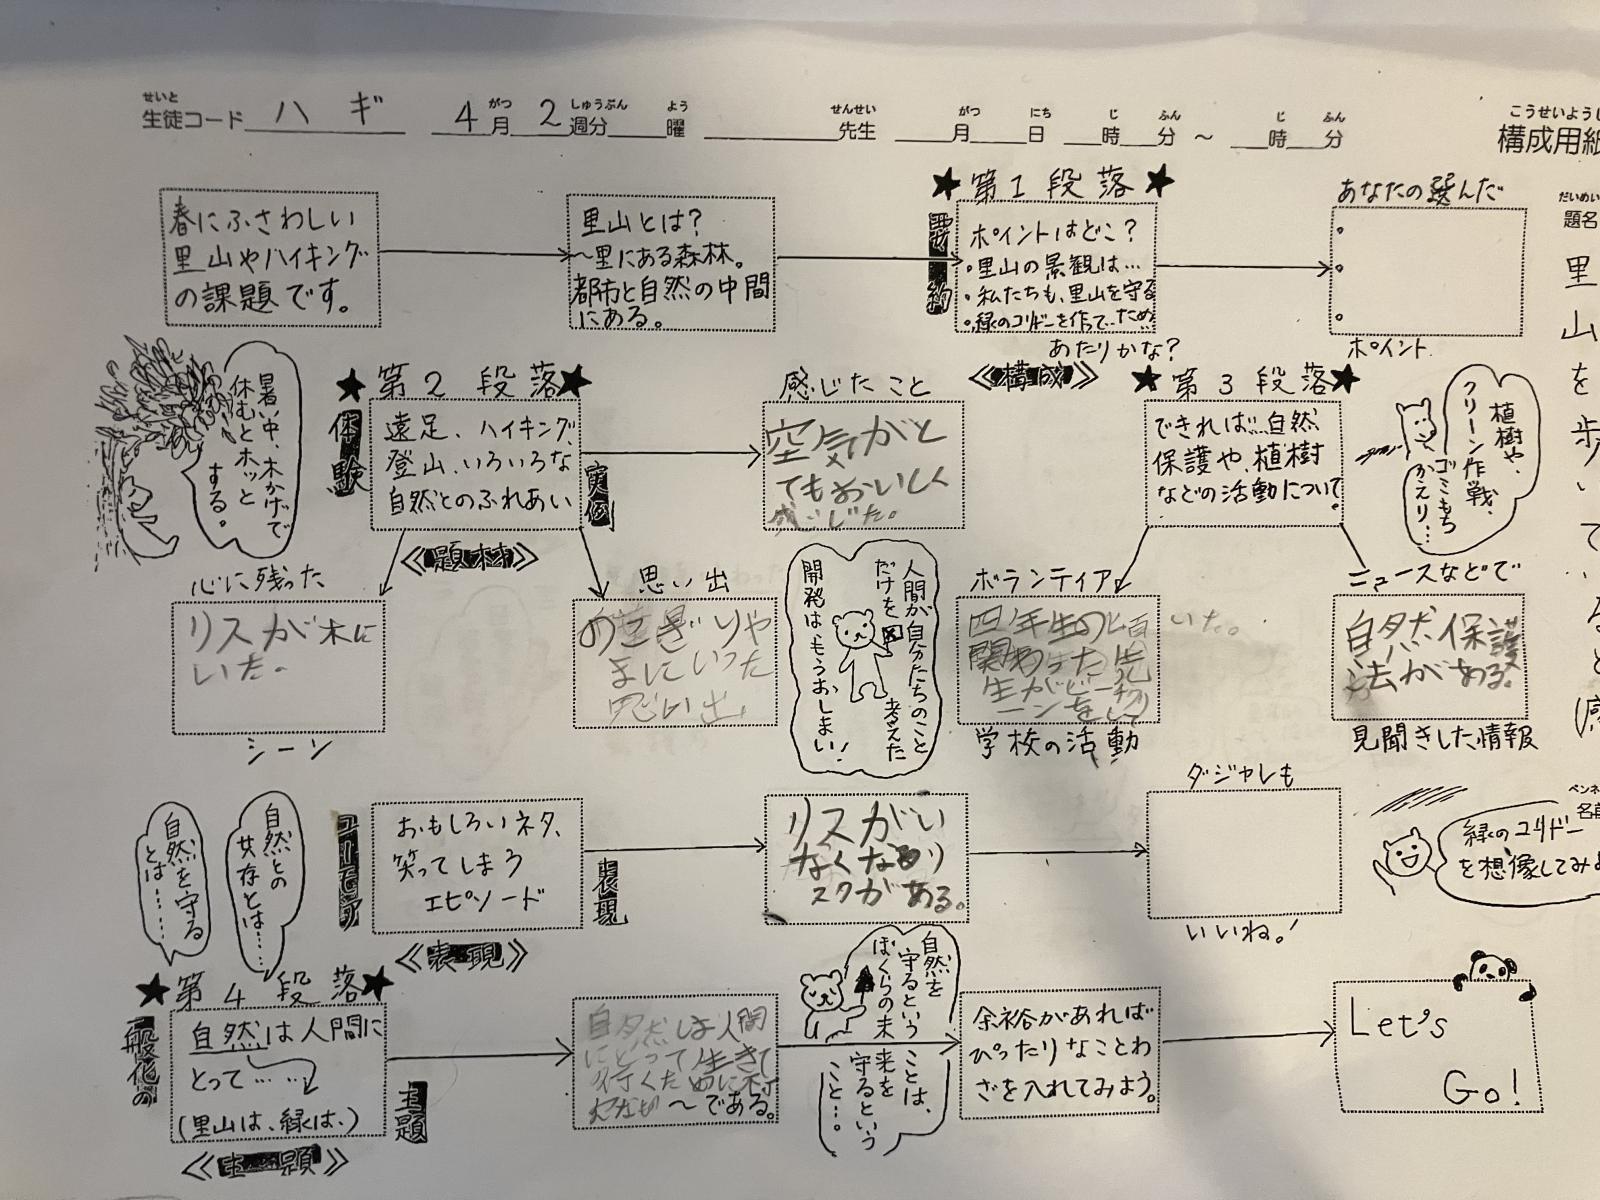 せいと
生徒コード ハギ 4月 がつ 2週分 しゅうぶん 曜 よう 先生 せんせい 月 がつ 日 にち 時 じ 分 ふん ～ 時 じ 分 ふん
こうせいようし
構成用紙
だいめい
題名
里山を歩いて
春にふさわしい
里山やハイキング
の課題です。
里山とは？
～里にある森林。
都市と自然の中間
にある。
★第1段落★
要約
ポイントはどこ？
・里山の景観は…
・私たちも、里山を守る
・緑のコリドーを作って…ため
あたりかな？
あなたの選んだ
ポイント
暑い中、木かげで
休むとホッと
する。
★第2段落★
体験
遠足、ハイキング、
登山、いろいろな
自然とのふれあい
《題材》
実例
感じたこと
空気がと
てもおいしく
感じた。
《構成》
★第3段落★
できれば…自然
保護や、植樹
などの活動について。
植樹や、
クリーン作戦、
ゴミもち
かえり…
心に残った
リスが木に
いた。
シーン
思い出
のこぎりや
まにいった
思い出
人間が自分たちのこと
だけを考えた
開発はもうおしまい！
ボランティア
四年生の頃
いた。
学校の活動
ニュースなどで
自然保護
法がある。
見聞きした情報
自然を守る
とは……
自然との
共存とは……
ユーモア
おもしろいネタ、
笑ってしまう
エピソード
《表現》
表現
リスがい
なくなるリ
スクがある。
ダジャレも
いいね。！
ペンネ
名前
緑のコリドー
を想像してみよ
★第4段落★
一般化の
自然は人間に
とって……
(里山は、緑は、)
《主題》
主題
自然は人間
にとって生きて
行くために大
切な
～である。
自然を
守るという
ことは、
ぼくらの未
来を
守るという
こと…。
余裕があれば
ぴったりなことわ
ざを入れてみよう。
Let's
Go!